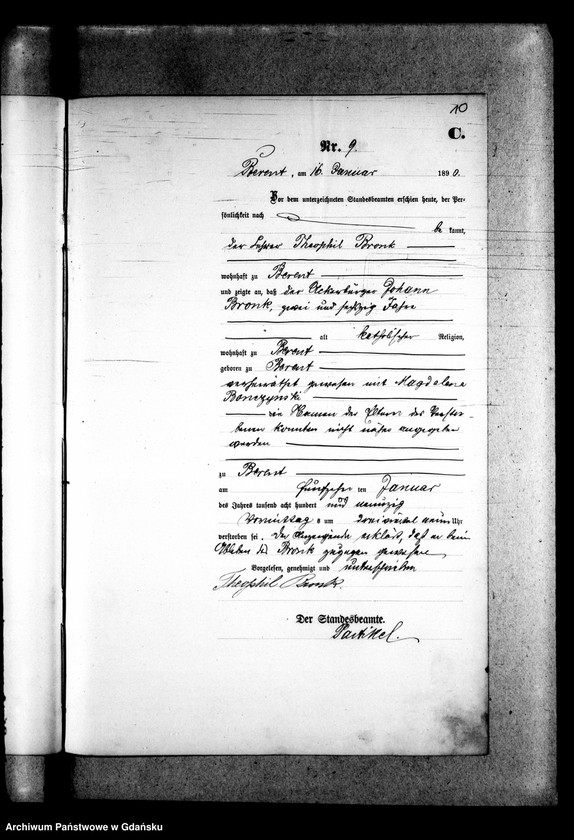 10
C.
Nr. 9.
Berent, am 16. Januar 1890.
Vor dem unterzeichneten Standesbeamten erschien heute, der Per-
sönlichkeit nach
be kannt,
der Lehrer Theophil Bronk
wohnhaft zu Berent
und zeigte an, daß der Ackerbürger Johann
Bronk, zwei und sechzig Jahre
alt katholischer Religion,
wohnhaft zu Berent
geboren zu Berent
verheirathet gewesen mit Magdalena
Bonczynski
die Namen der Eltern des Verstor-
benen konnten nicht näher angegeben
werden
zu Berent
am fünfzehn ten Januar
des Jahres tausend acht hundert und neunzig
Vormittags um dreiviertel neun Uhr
verstorben sei. Der Anzeigende erklärt, daß er beim
Ableben des Bronk zugegen gewesen
Vorgelesen, genehmigt und unterschrieben
Theophil Bronk.
Der Standesbeamte.
Partikel.
Archiwum Państwowe w Gdańsku